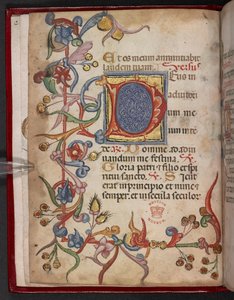 Et os meum annuntiabit
laudem tuam. Versus
Deus in
adiutori
um me
um inte
de. R. Domine ad adiu
uandum me festina.
Gloria patri et filio et spi
ritui sancto. R. Sicut
erat in principio et nunc et
semper. et in secula seculor